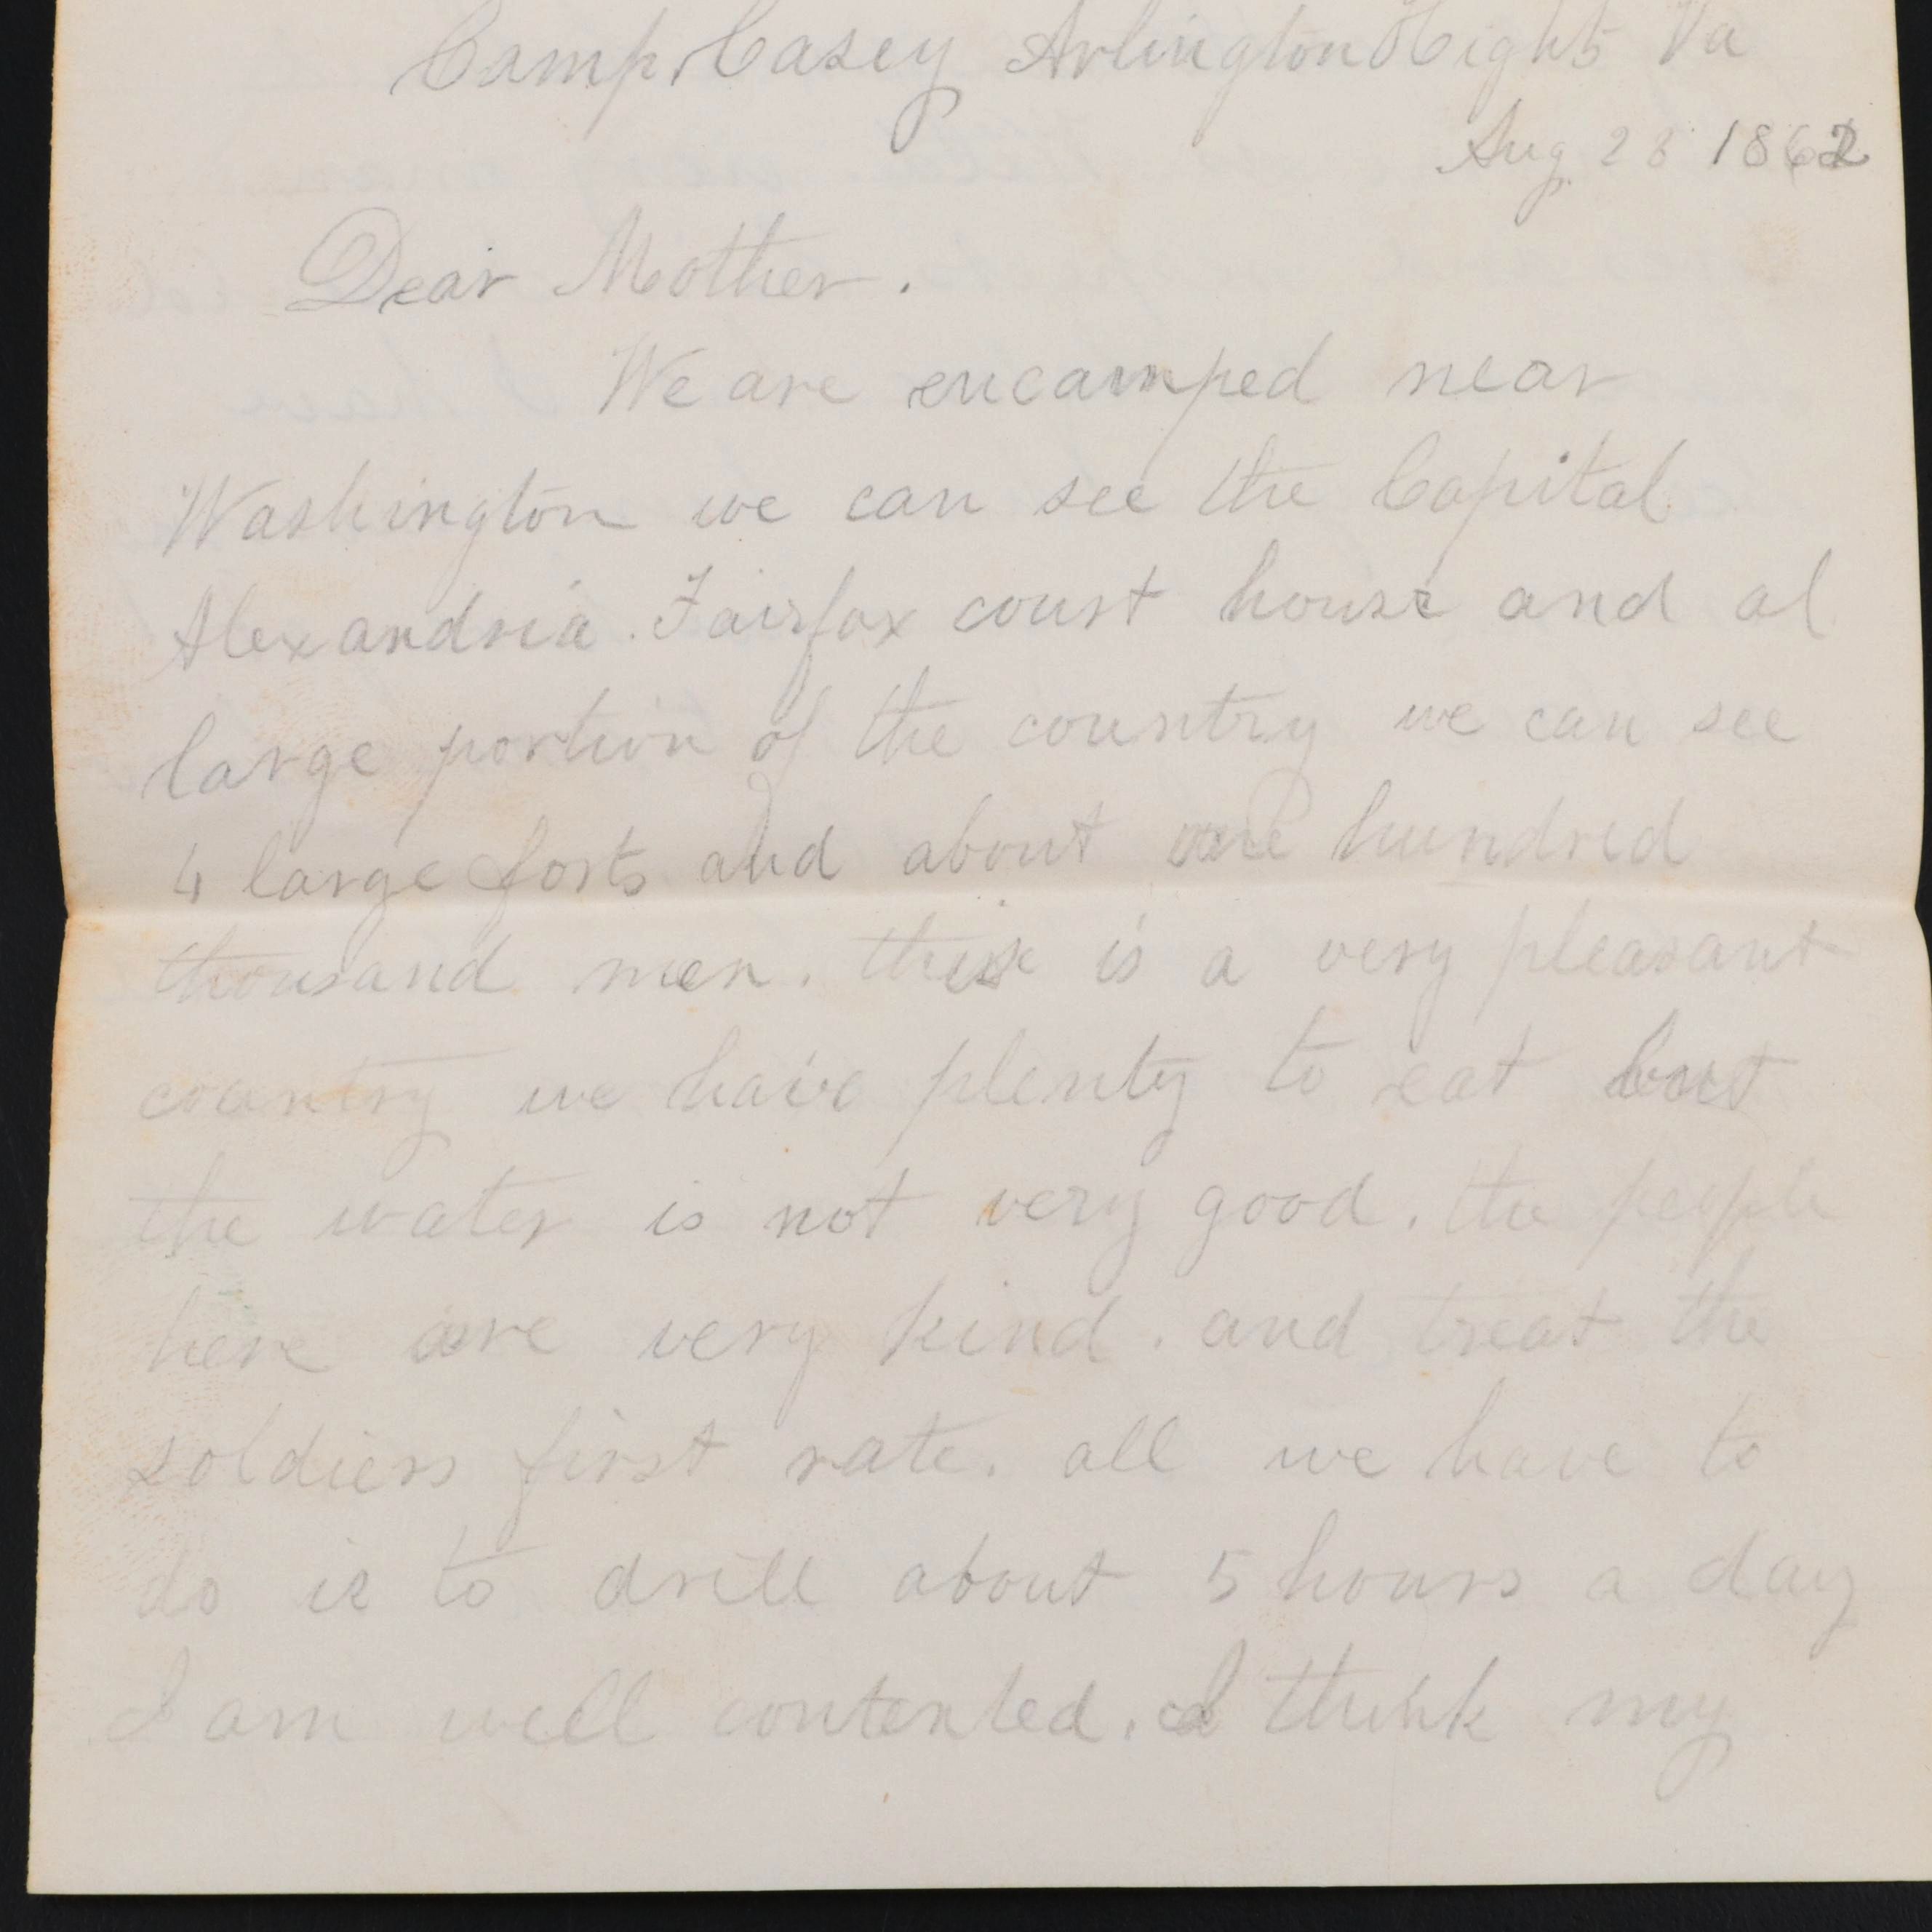 Camp Casey Arlington Hights Va
Aug 28 1862
Dear Mother.
We are encamped near
Washington we can see the Capital
Alexandria. Fairfax court house and al
large portion of the country we can see
4 large forts and about one hundred
thousand men. this is a very pleasant
country we have plenty to eat but
the water is not very good. the people
here are very kind. and treat the
soldiers first rate. all we have to
do is to drill about 5 hours a day
I am well contented. I think my